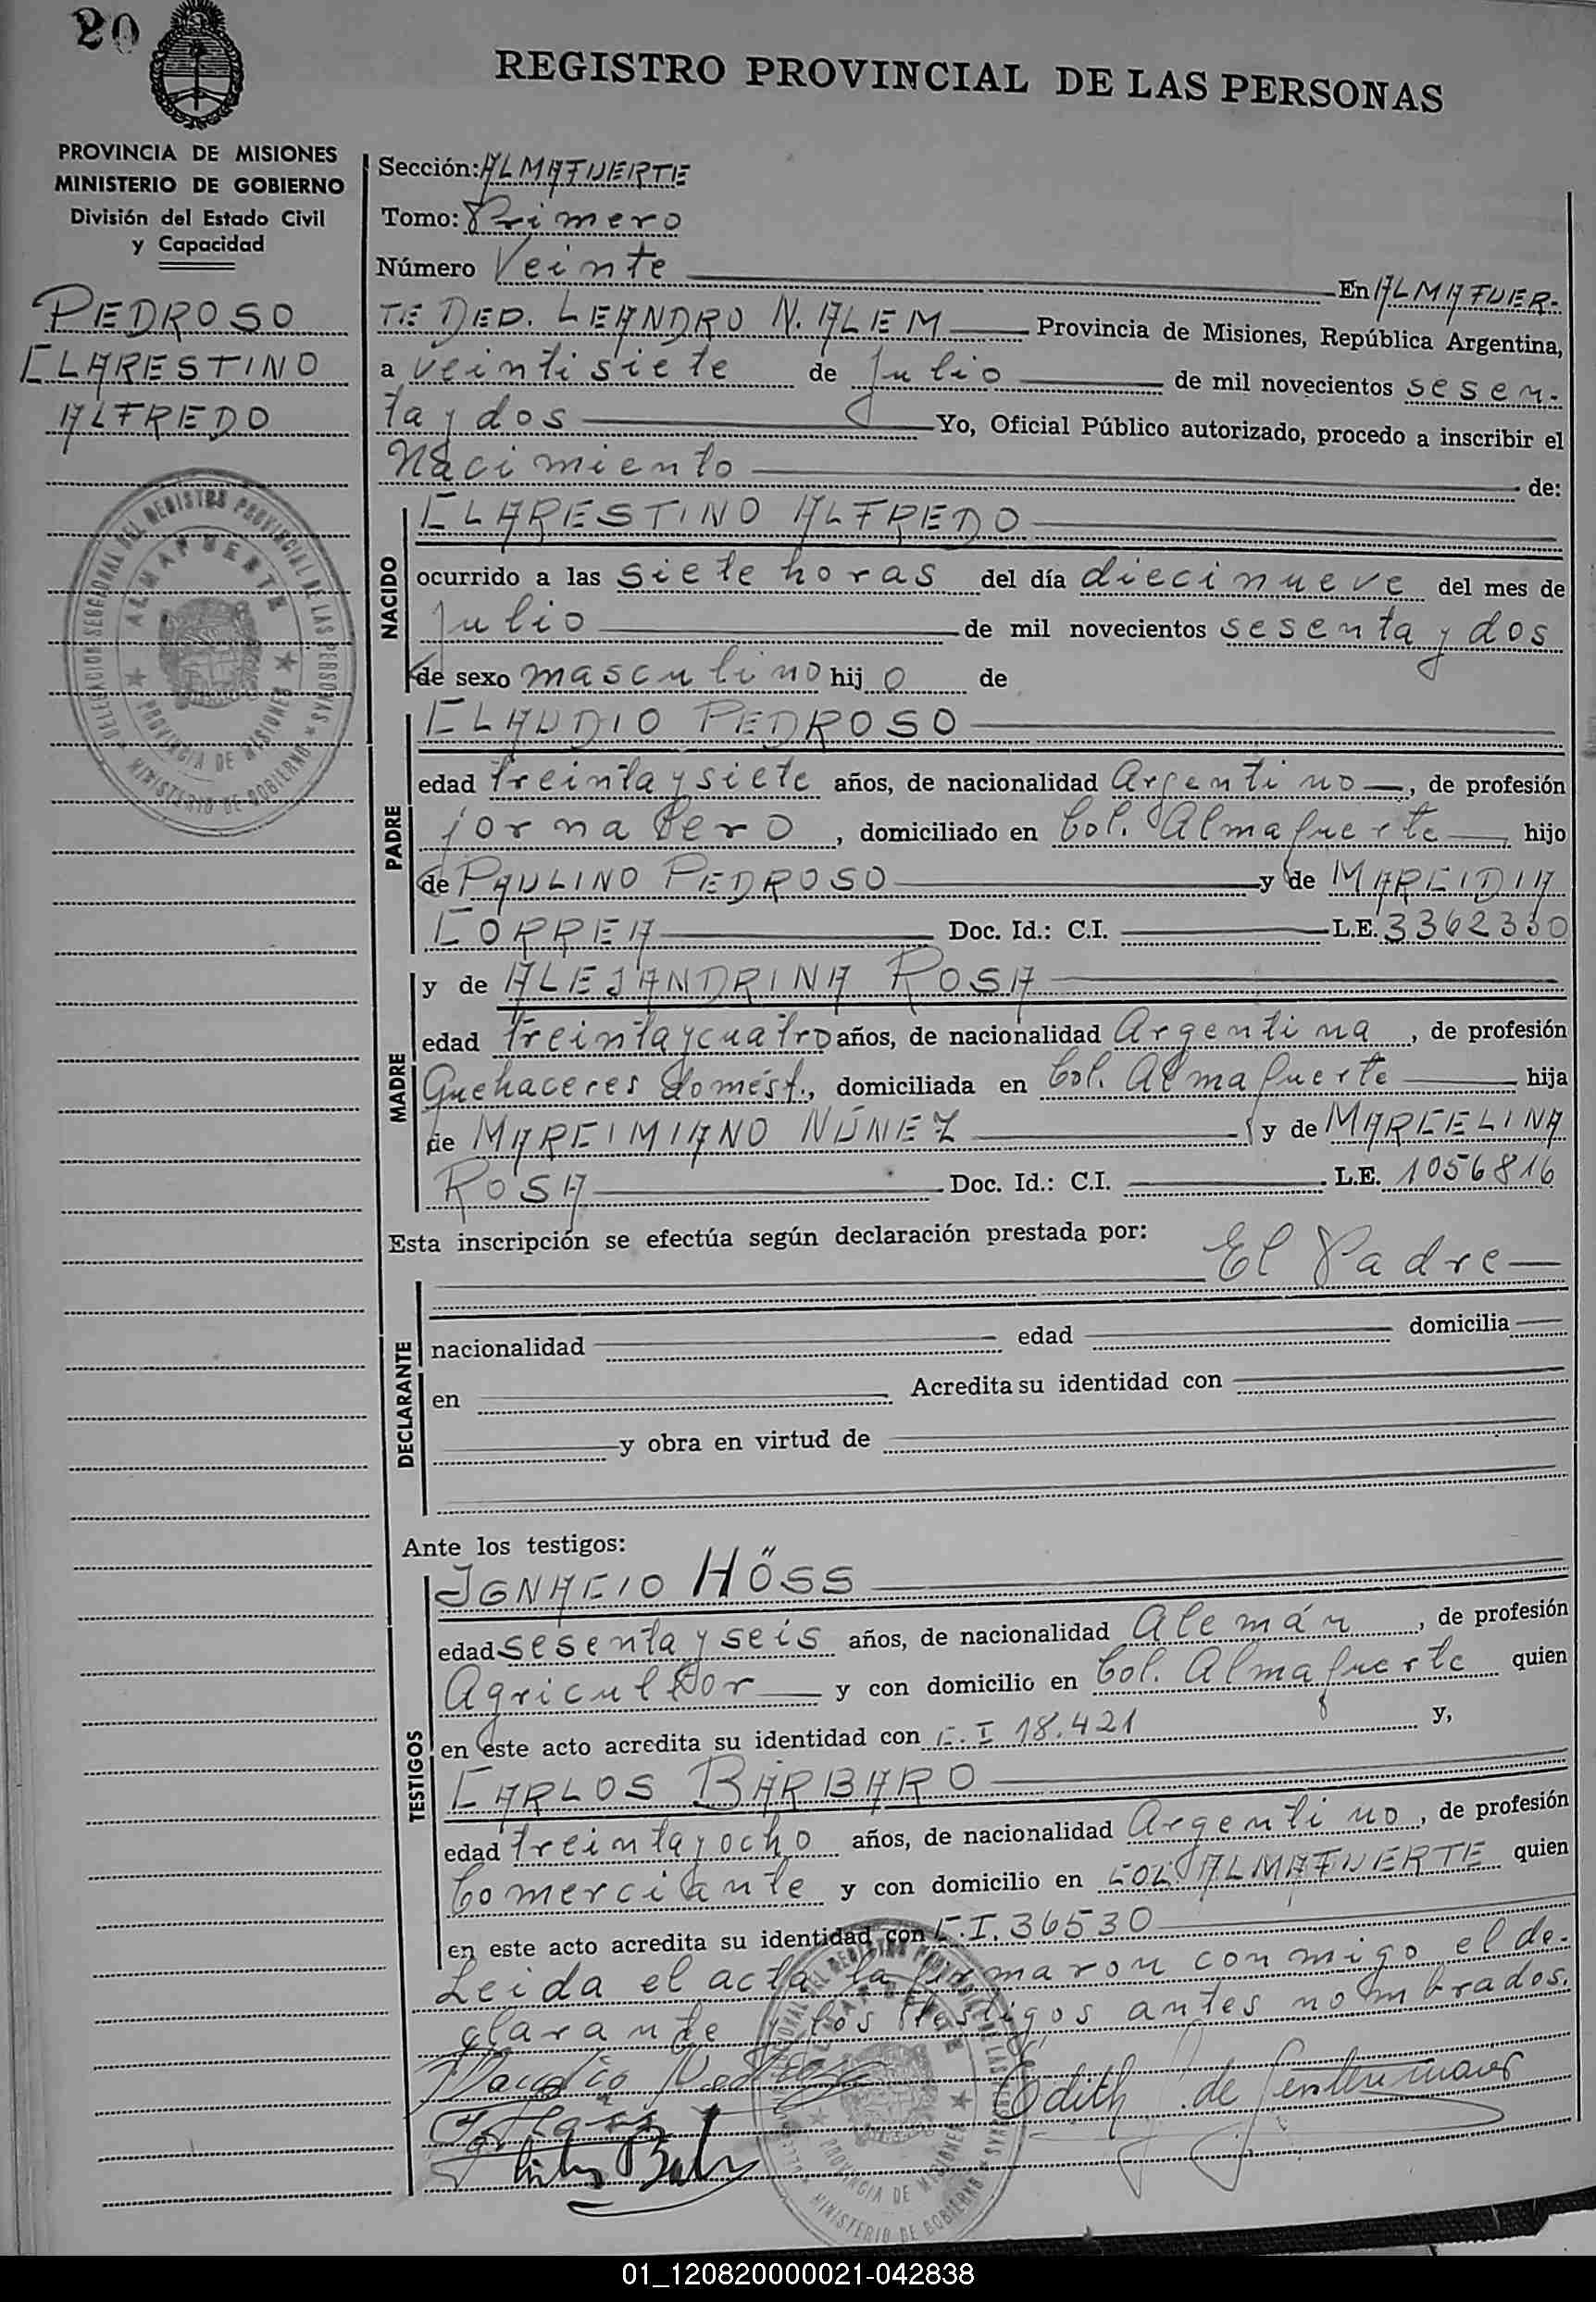 20
REGISTRO PROVINCIAL DE LAS PERSONAS
PROVINCIA DE MISIONES
MINISTERIO DE GOBIERNO
División del Estado Civil
y Capacidad
PEDROSO
CLARESTINO
ALFREDO
DELEGACION SECCIONAL DEL REGISTRO PROVINCIAL DE LAS PERSONAS
ALMAFUERTE
PROVINCIA DE MISIONES
MINISTERIO DE GOBIERNO
Sección: ALMAFUERTE
Tomo: Primero
Número Veinte En ALMAFUER-
TE DED. LEANDRO N. ALEM Provincia de Misiones, República Argentina,
a veintisiete de Julio de mil novecientos sesen-
ta y dos Yo, Oficial Público autorizado, procedo a inscribir el
Nacimiento de:
NACIDO
CLARESTINO ALFREDO
ocurrido a las siete horas del día diecinueve del mes de
Julio de mil novecientos sesenta y dos
de sexo masculino hijo de
PADRE
CLAUDIO PEDROSO
edad treinta y siete años, de nacionalidad Argentino, de profesión
jornalero, domiciliado en Col. Almafuerte hijo
de PAULINO PEDROSO y de MARCIDIA
CORREA Doc. Id.: C.I. L.E.
MADRE
y de ALEJANDRINA ROSA
edad treinta y cuatro años, de nacionalidad Argentina, de profesión
Quehaceres domést., domiciliada en Col. Almafuerte hija
de MARCIMIANO NÚNEZ y de MARCELINA
ROSA Doc. Id.: C.I. L.E. 1056816
Esta inscripción se efectúa según declaración prestada por:
El Padre
DECLARANTE
nacionalidad edad domicilia
en Acredita su identidad con
y obra en virtud de
Ante los testigos:
TESTIGOS
IGNACIO HÖSS
edad sesenta y seis años, de nacionalidad Alemán, de profesión
Agricultor y con domicilio en Col. Almafuerte quien
en este acto acredita su identidad con C.I 18.421 y,
CARLOS BÁRBARO
edad treinta y ocho años, de nacionalidad Argentino, de profesión
Comerciante y con domicilio en COL. ALMAFUERTE quien
en este acto acredita su identidad con C.I. 36530
Leida el acta la firmaron conmigo el de-
clarante y los testigos antes nombrados.
Edith de
PROVINCIA DE MISIONES
MINISTERIO DE GOBIERNO
01_120820000021-042838